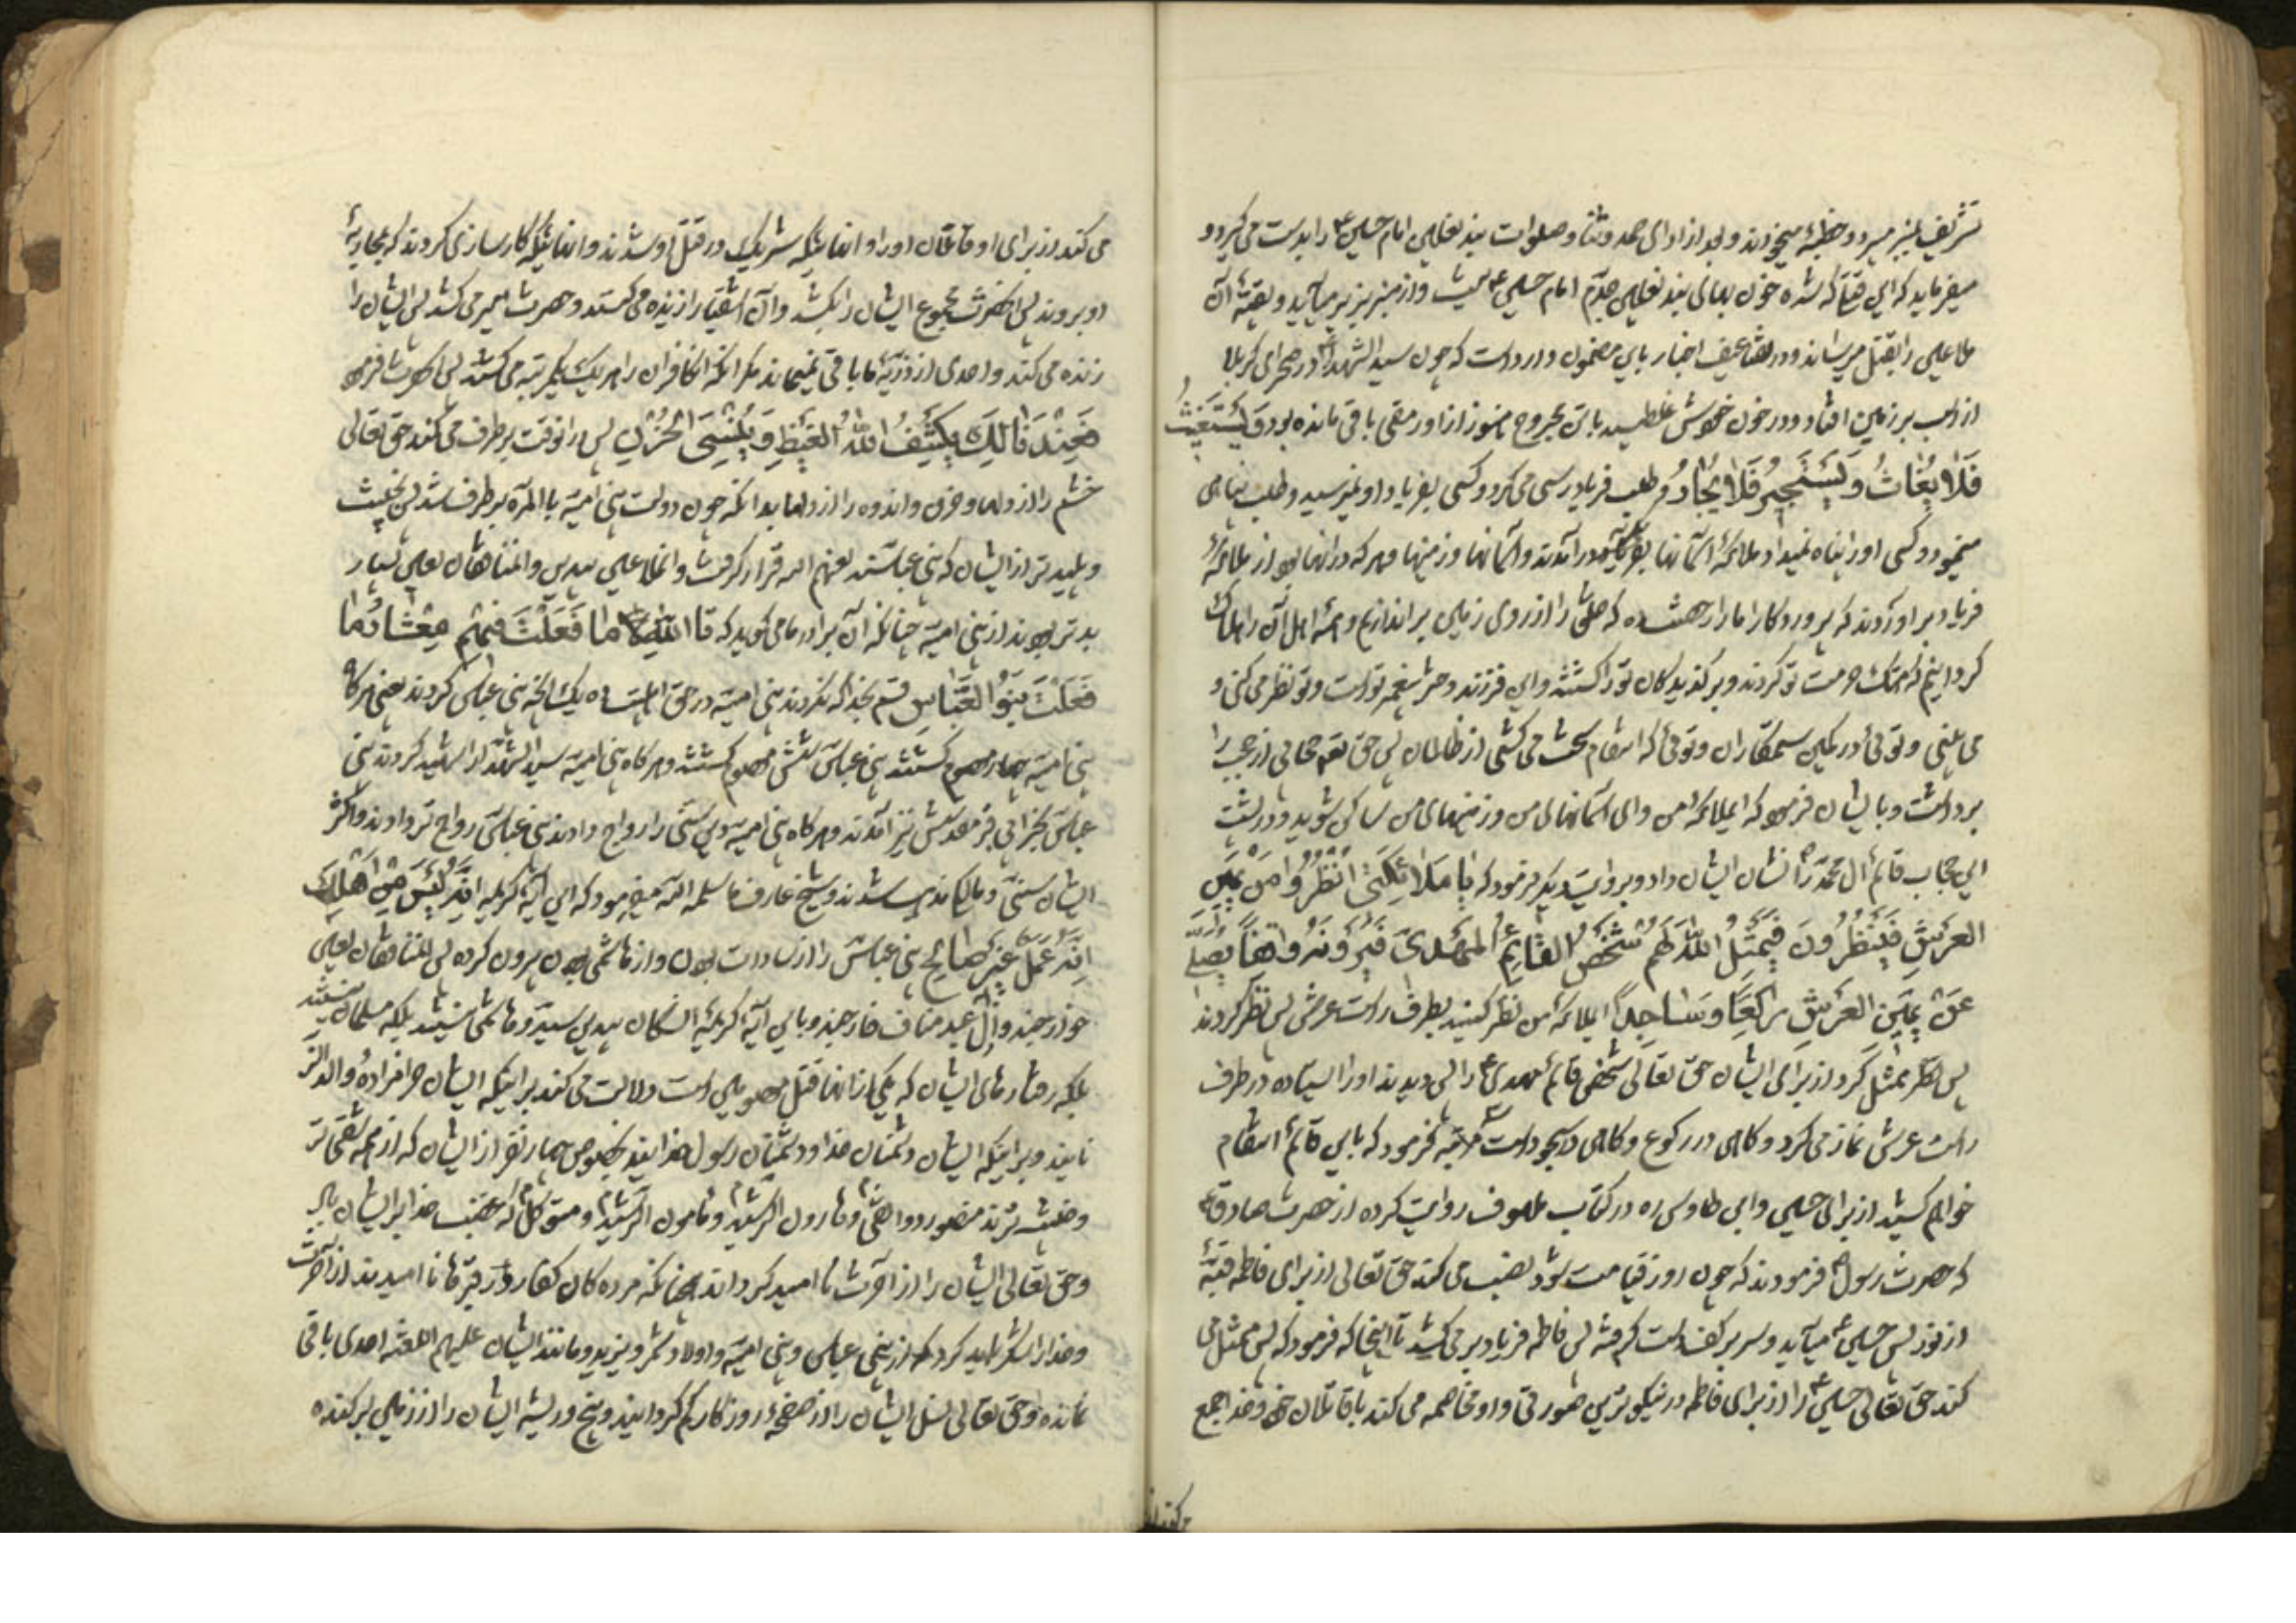 تشریف بمنبر میبرد و خطبهٔ میخواند و بعد از ادای حمد و ثنا و صلوات بند نعلین امام حسین ع را بدست می‌گیرد و
میفرماید که این بند نعلین جدم امام حسین ع است و از منبر بزیر میآید و بقیهٔ آن
ملاعین را بقتل میرساند و در تضاعیف اخبار باین مضمون وارد است که چون سید الشهدا در صحرای کربلا
از اسب بر زمین افتاد و در خون خویش غلطید با تن مجروح هنوز از او رمقی باقی مانده بود و یستغیث
فَلَا یُغَاثُ وَ یَسْتَجِیرُ فَلَا یُجَارُ طلب فریادرسی می‌کرد و کسی بفریاد او نمیرسید و طلب پناهی
مینمود و کسی او را پناه نمیداد ملائکهٔ آسمانها بگریه درآمدند و آسمانها و زمینها و هر که در آنها بود از ملائکه
فریاد برآوردند که پروردگارا ما را رخصت ده که خلق را از روی زمین براندازیم و همهٔ اهل آن را هلاک
گردانیم که هتک حرمت تو کردند و برگزیدگان تو را کشتند و این فرزند دختر پیغمبر تو است و تو نظر می‌کنی و
می بینی و توئی در کمین ستمکاران و توئی که انتقام سخت می کشی از ظالمان پس حق تعالی حجابی از حجب را
برداشت و بایشان فرمود که ای ملائکه من و ای آسمانهای من و زمینهای من ساکن شوید و در پشت
این حجاب قائم آل محمد را نشان ایشان داد و بروایت دیگر فرمود که یَا مَلَائِکَتِی انْظُرُوا مِنْ یَمِینِ
العَرْشِ فَیَنْظُرُونَ فَیُمَثِّلُ اللهُ لَهُمْ شَخْصَ القَائِمِ المَهْدِیِّ فَیَرَوْنَهُ وَاقِفًا یُصَلِّی
عَنْ یَمِینِ العَرْشِ رَاکِعًا وَ سَاجِدًا ای ملائکهٔ من نظر کنید بطرف راست عرش پس نظر کردند
پس ممثل کرد از برای ایشان حق تعالی شخص قائم مهدی ع را پس دیدند او را ایستاده در طرف
راست عرش نماز می‌کرد و گاهی در رکوع و گاهی در سجود است فرمود که باین قائم انتقام
خواهم کشید از برای حسین و ابن طاوس ره در کتاب ملهوف روایت کرده از حضرت صادق ع
که حضرت رسول فرمودند که چون روز قیامت شود نصب می کند حق تعالی از برای فاطمه قبهٔ
از نور پس حسین ع میآید و سر بر کف دست گرفته پس فاطمه فریاد بر می کشد تا آنجا که فرمود که پس ممثل می
کند حق تعالی حسین ع را از برای فاطمه در نیکوترین صورتی و او مخاصمه می کند با قاتلان خود و خدا جمع
می کند از برای او قاتلان او را و آنهائیکه شریک در قتل او شدند و آنهائیکه کارسازی کردند که بمحاربهٔ
او بروند پس آنحضرت مجموع ایشان را بکشد و آن اشقیا را زنده می کنند و حضرت امیر می کشد پس ایشان را
زنده می کنند و احدی از ذریهٔ ما باقی نمیماند مگر آنکه آن کافران را هر یک یکمرتبه می کشند پس آنحضرت فرمود
فَعِنْدَ ذَالِكَ یَكْشِفُ اللهُ الغَیْظَ وَ یُنْسِی الحُزْنَ پس در آنوقت برطرف می کند حق تعالی
خشم را از دلها و حزن و اندوه را از دلها بدانکه چون دولت بنی امیه بالمره برطرف شد پس خبیث
و پلیدتر از ایشان که بنی عباسند لعنهم الله قرار گرفت و آنملاعین بیدین و آن منافقان لعین بسیار
بدتر بودند از بنی امیه چنانکه آن برادر ما می گوید که تَاللهِ مَا فَعَلَتْ فِیهِمْ مِعْشَارَ مَا
فَعَلَتْ بَنُو العَبَّاسِ قسم بخدا که نکردند بنی امیه در حق ایشان ده یک آنچه بنی عباس کردند یعنی هرگاه
بنی امیه چهار معصوم کشتند بنی عباس شش معصوم کشتند و هرگاه بنی امیه سید الشهدا را شهید کردند بنی
عباس بخرابی قبر مقدسش نیز آمدند و هرگاه بنی امیه دین سنی را رواج دادند بنی عباس رواج‌تر دادند و اکثر
ایشان سنی و مالکی مذهب شدند و شیخ عارف ما سلمه الله میفرمود که این آیهٔ کریمه اِنَّهُ لَیْسَ مِنْ اَهْلِكَ
اِنَّهُ عَمَلٌ غَیْرُ صَالِحٍ بنی عباس را از سادات بودن و از هاشمی بودن بیرون کرده پس آن منافقان لعین
خوارجند و از آل عبد مناف خارجند و باین آیهٔ کریمه آن سگان بیدین سید و هاشمی نیستند بلکه مسلمان نیستند
بلکه رفتارهای ایشان که یکی از آنها قتل معصومین است دلالت می کند بر اینکه ایشان حرامزاده و ولد الزنا
نایند و بر اینکه ایشان دشمنان خدا و دشمنان رسول خدایند بخصوص چهار نفر از ایشان که از همه شقی تر
و خبیث ترند منصور دوانقی و هارون الرشید و مامون الرشید و متوکل که غضب خدا بر ایشان باد
و حق تعالی ایشان را از آخرت ناامید گرداند چنانکه مرده گان کفار در قبرها ناامیدند از آخرت
و خدا را شکر باید کرد که از بنی عباس و بنی امیه و اولاد شمر و یزید و مانند ایشان علیهم اللعنه احدی باقی
نمانده و حق تعالی نسل ایشان را از صفحهٔ روزگار گم گردانید و بیخ و ریشه ایشان را از زمین برکنده